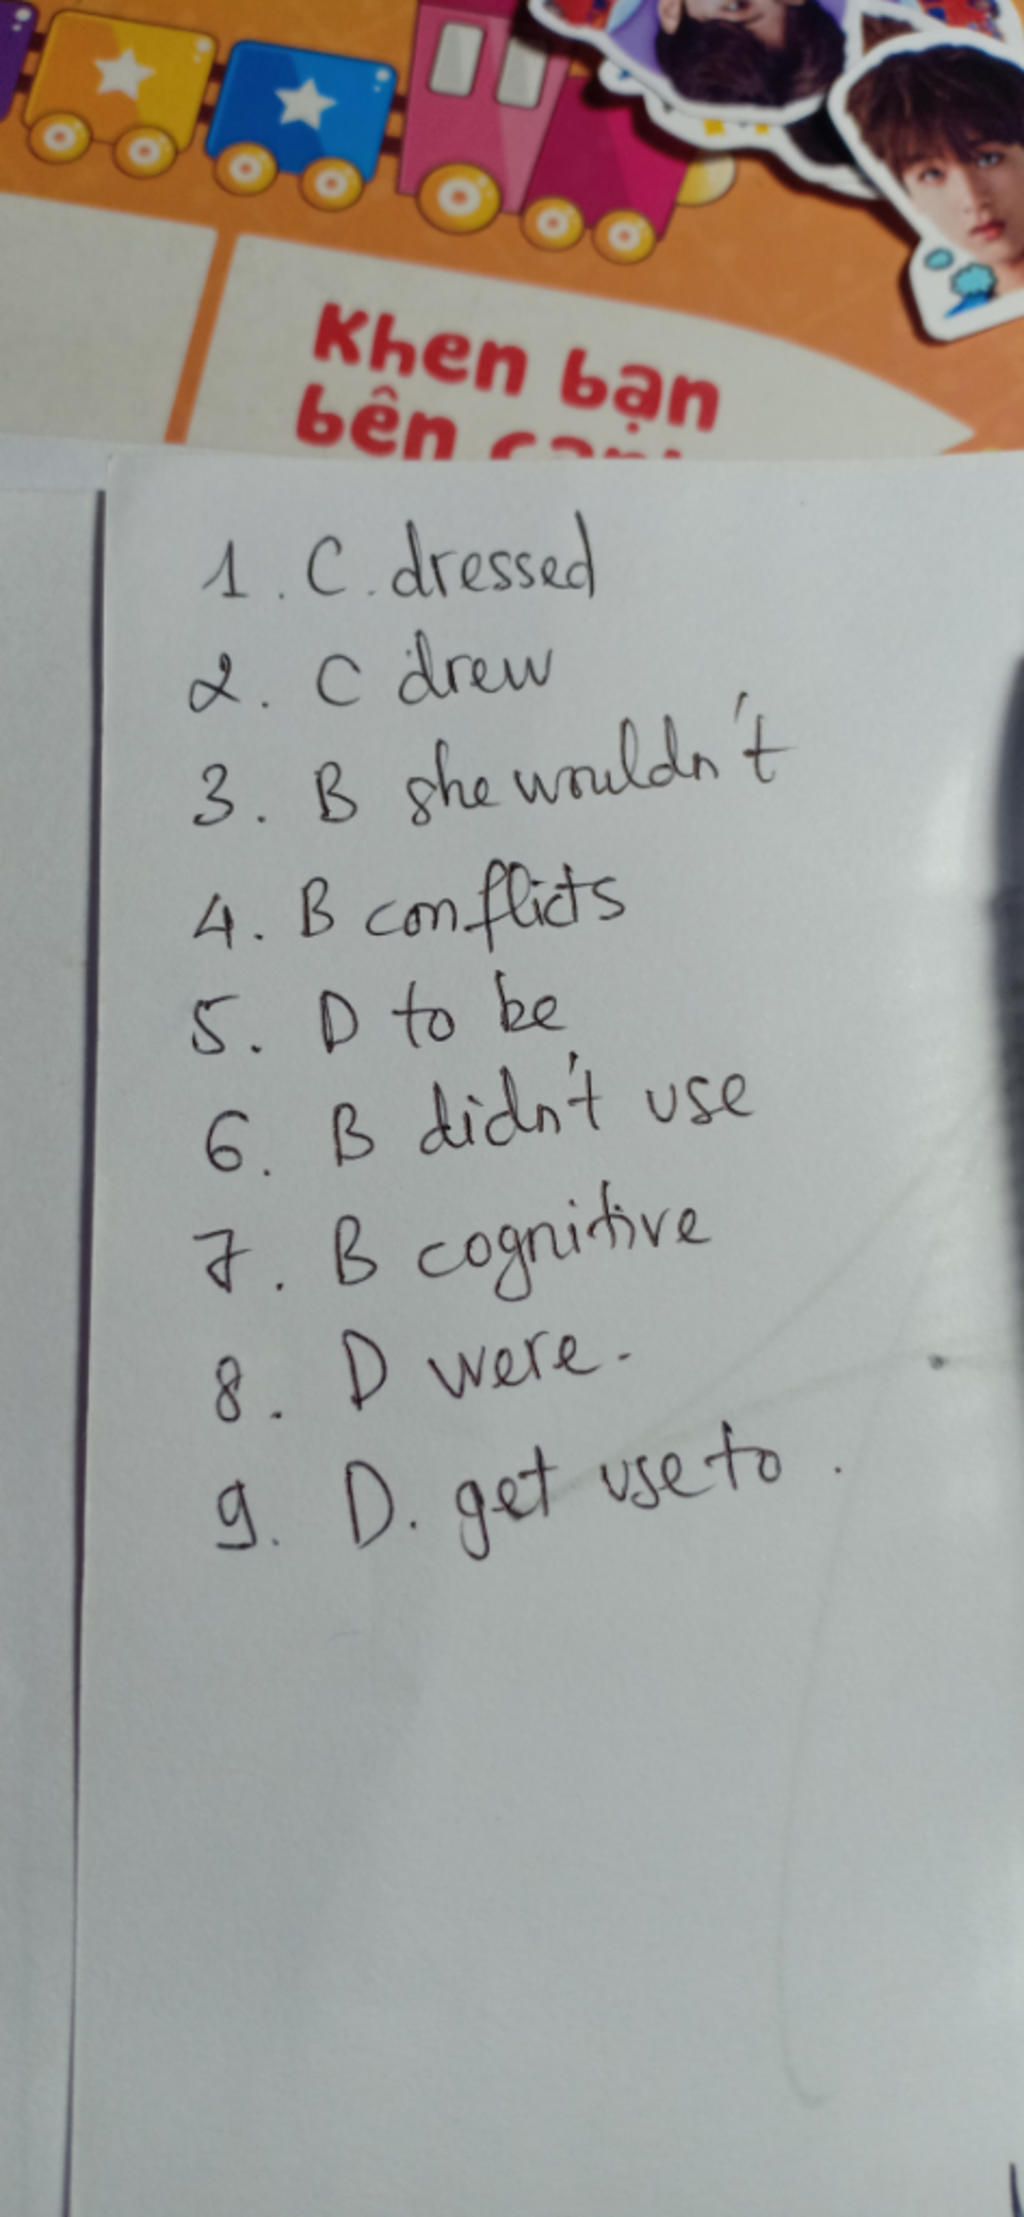 Khen bạn
bên
1. C. dressed
2. C drew
3. B she wouldn't
4. B conflicts
5. D to be
6. B didn't use
7. B cognitive
8. D were.
9. D. get use to.